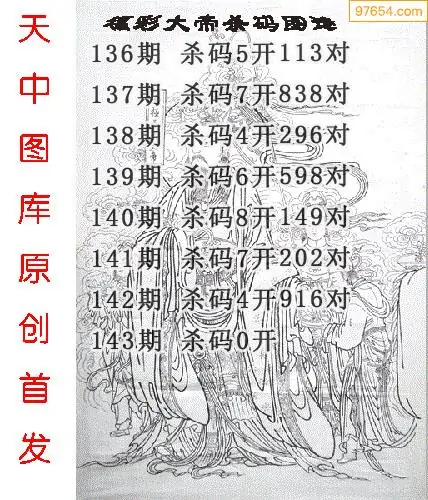 福彩大帝杀码图迷
97654.com
136期 杀码5开113对
137期 杀码7开838对
138期 杀码4开296对
139期 杀码6开598对
140期 杀码8开149对
141期 杀码7开202对
142期 杀码4开916对
143期 杀码0开
天中图库原创首发